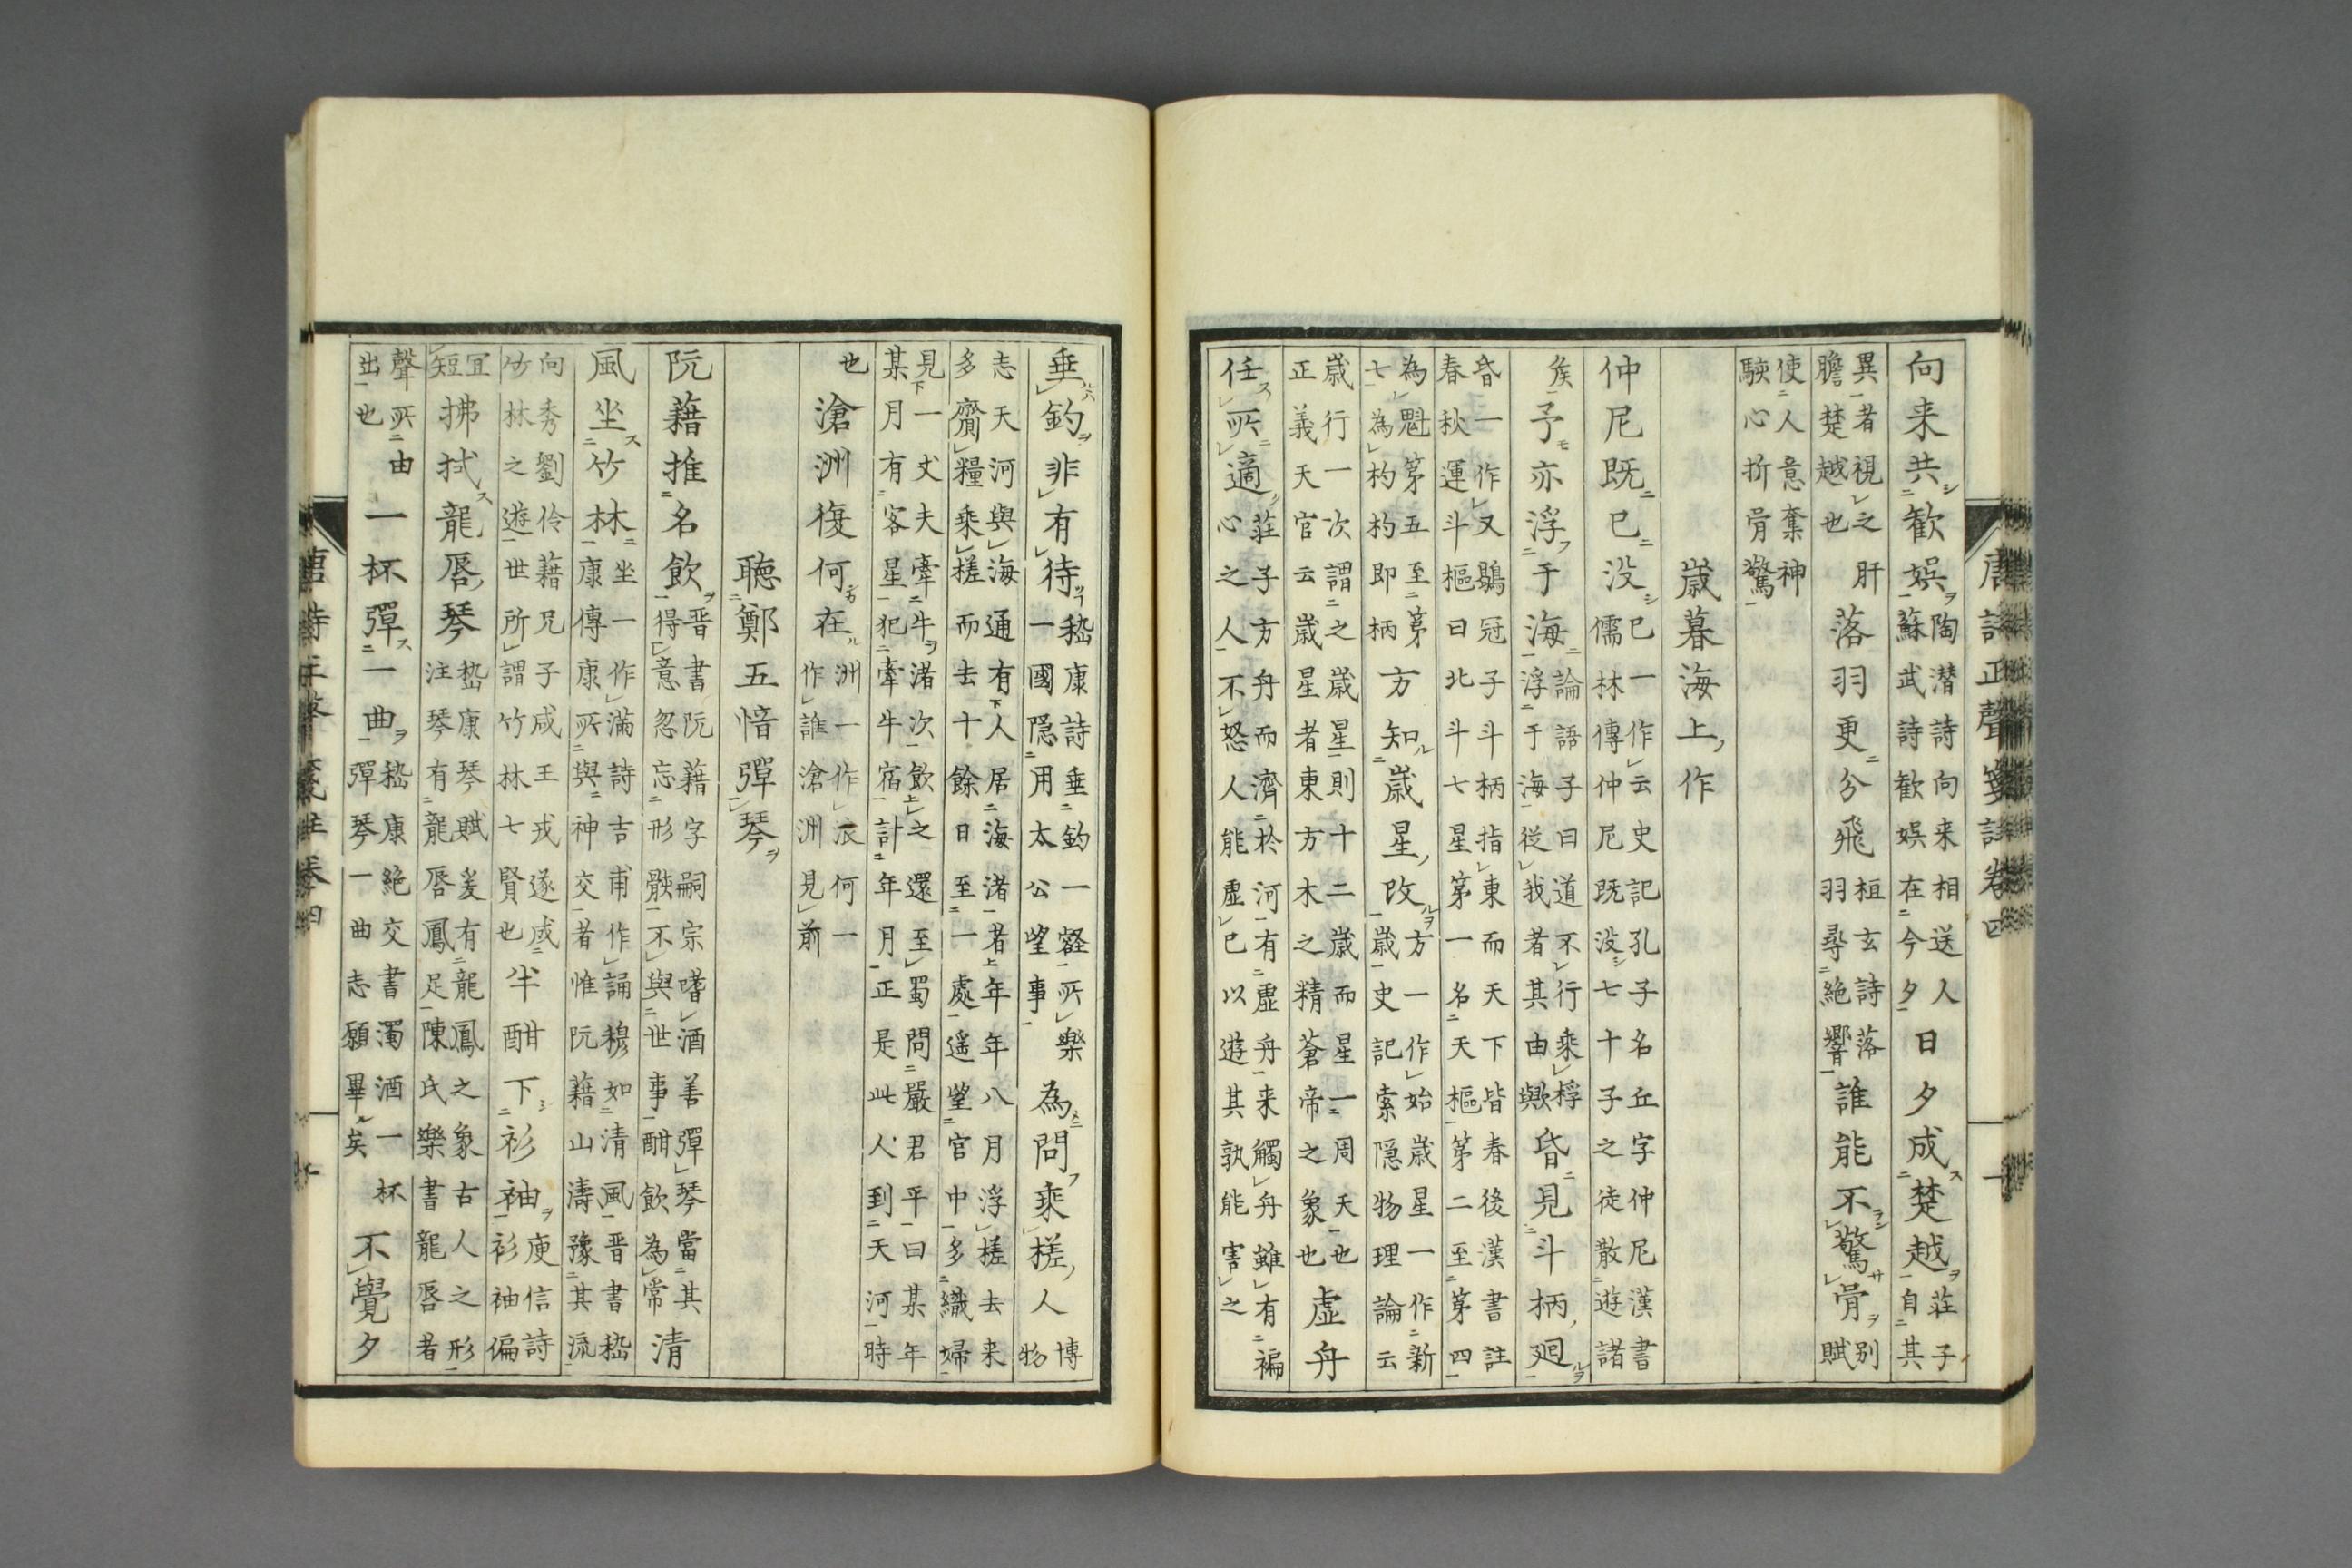 唐詩正聲箋註卷四
向来共歓娯陶潜詩向来相送人蘇武詩歓娯在今夕日夕成楚越荘子自其
異者視之肝膽楚越也落羽更分飛桓玄詩落羽尋絶響誰能不驚骨別賦
使人意奪神駭心折骨驚
歳暮海上作
仲尼既已没已一作云史記孔子名丘字仲尼漢書儒林傳仲尼既没七十子之徒散遊諸
矦予亦浮于海論語子曰道不行乗桴浮于海從我者其由歟昏見斗柄廻
昏一作又鶡冠子斗柄指東而天下皆春後漢書註春秋運斗樞曰北斗七星第一名天樞第二至第四
為魁第五至第七為杓杓即柄方知歳星改方一作始歳星一作新歳史記索隠物理論云
歳行一次謂之歳星則十二歳而星一周天也正義天官云歳星者東方木之精蒼帝之象也虚舟
任所適荘子方舟而濟於河有虚舟来觸舟雖有褊心之人不怒人能虚已以遊其孰能害之
垂釣非有待嵆康詩垂釣一壑所樂一國隠用太公望事為問乗槎人博物
志天河與海通有人居海渚者年年八月浮槎去来多齎糧乗槎而去十餘日至一處遥望官中多織婦
見一丈夫牽牛渚次飲之還至蜀問嚴君平曰某年某月有客星犯牽牛宿計年月正是此人到天河時
也滄洲復何在洲一作辰何一作誰滄洲見前
聴鄭五愔彈琴
阮藉推名飲晋書阮藉字嗣宗嗜酒善彈琴當其得意忽忘形骸不與世事酣飲為常清
風坐竹林坐一作滿詩吉甫作誦穆如清風晋書嵆康傳康所與神交者惟阮藉山濤豫其流
向秀劉伶藉兄子咸王戎遂成竹林之遊世所謂竹林七賢也半酣下衫袖庾信詩衫袖偏
宜短拂拭龍唇琴嵆康琴賦爰有龍鳳之象古人之形注琴有龍唇鳳足陳氏樂書龍唇者
聲所由出也一杯彈一曲嵆康絶交書濁酒一杯彈琴一曲志願畢矣不覺夕